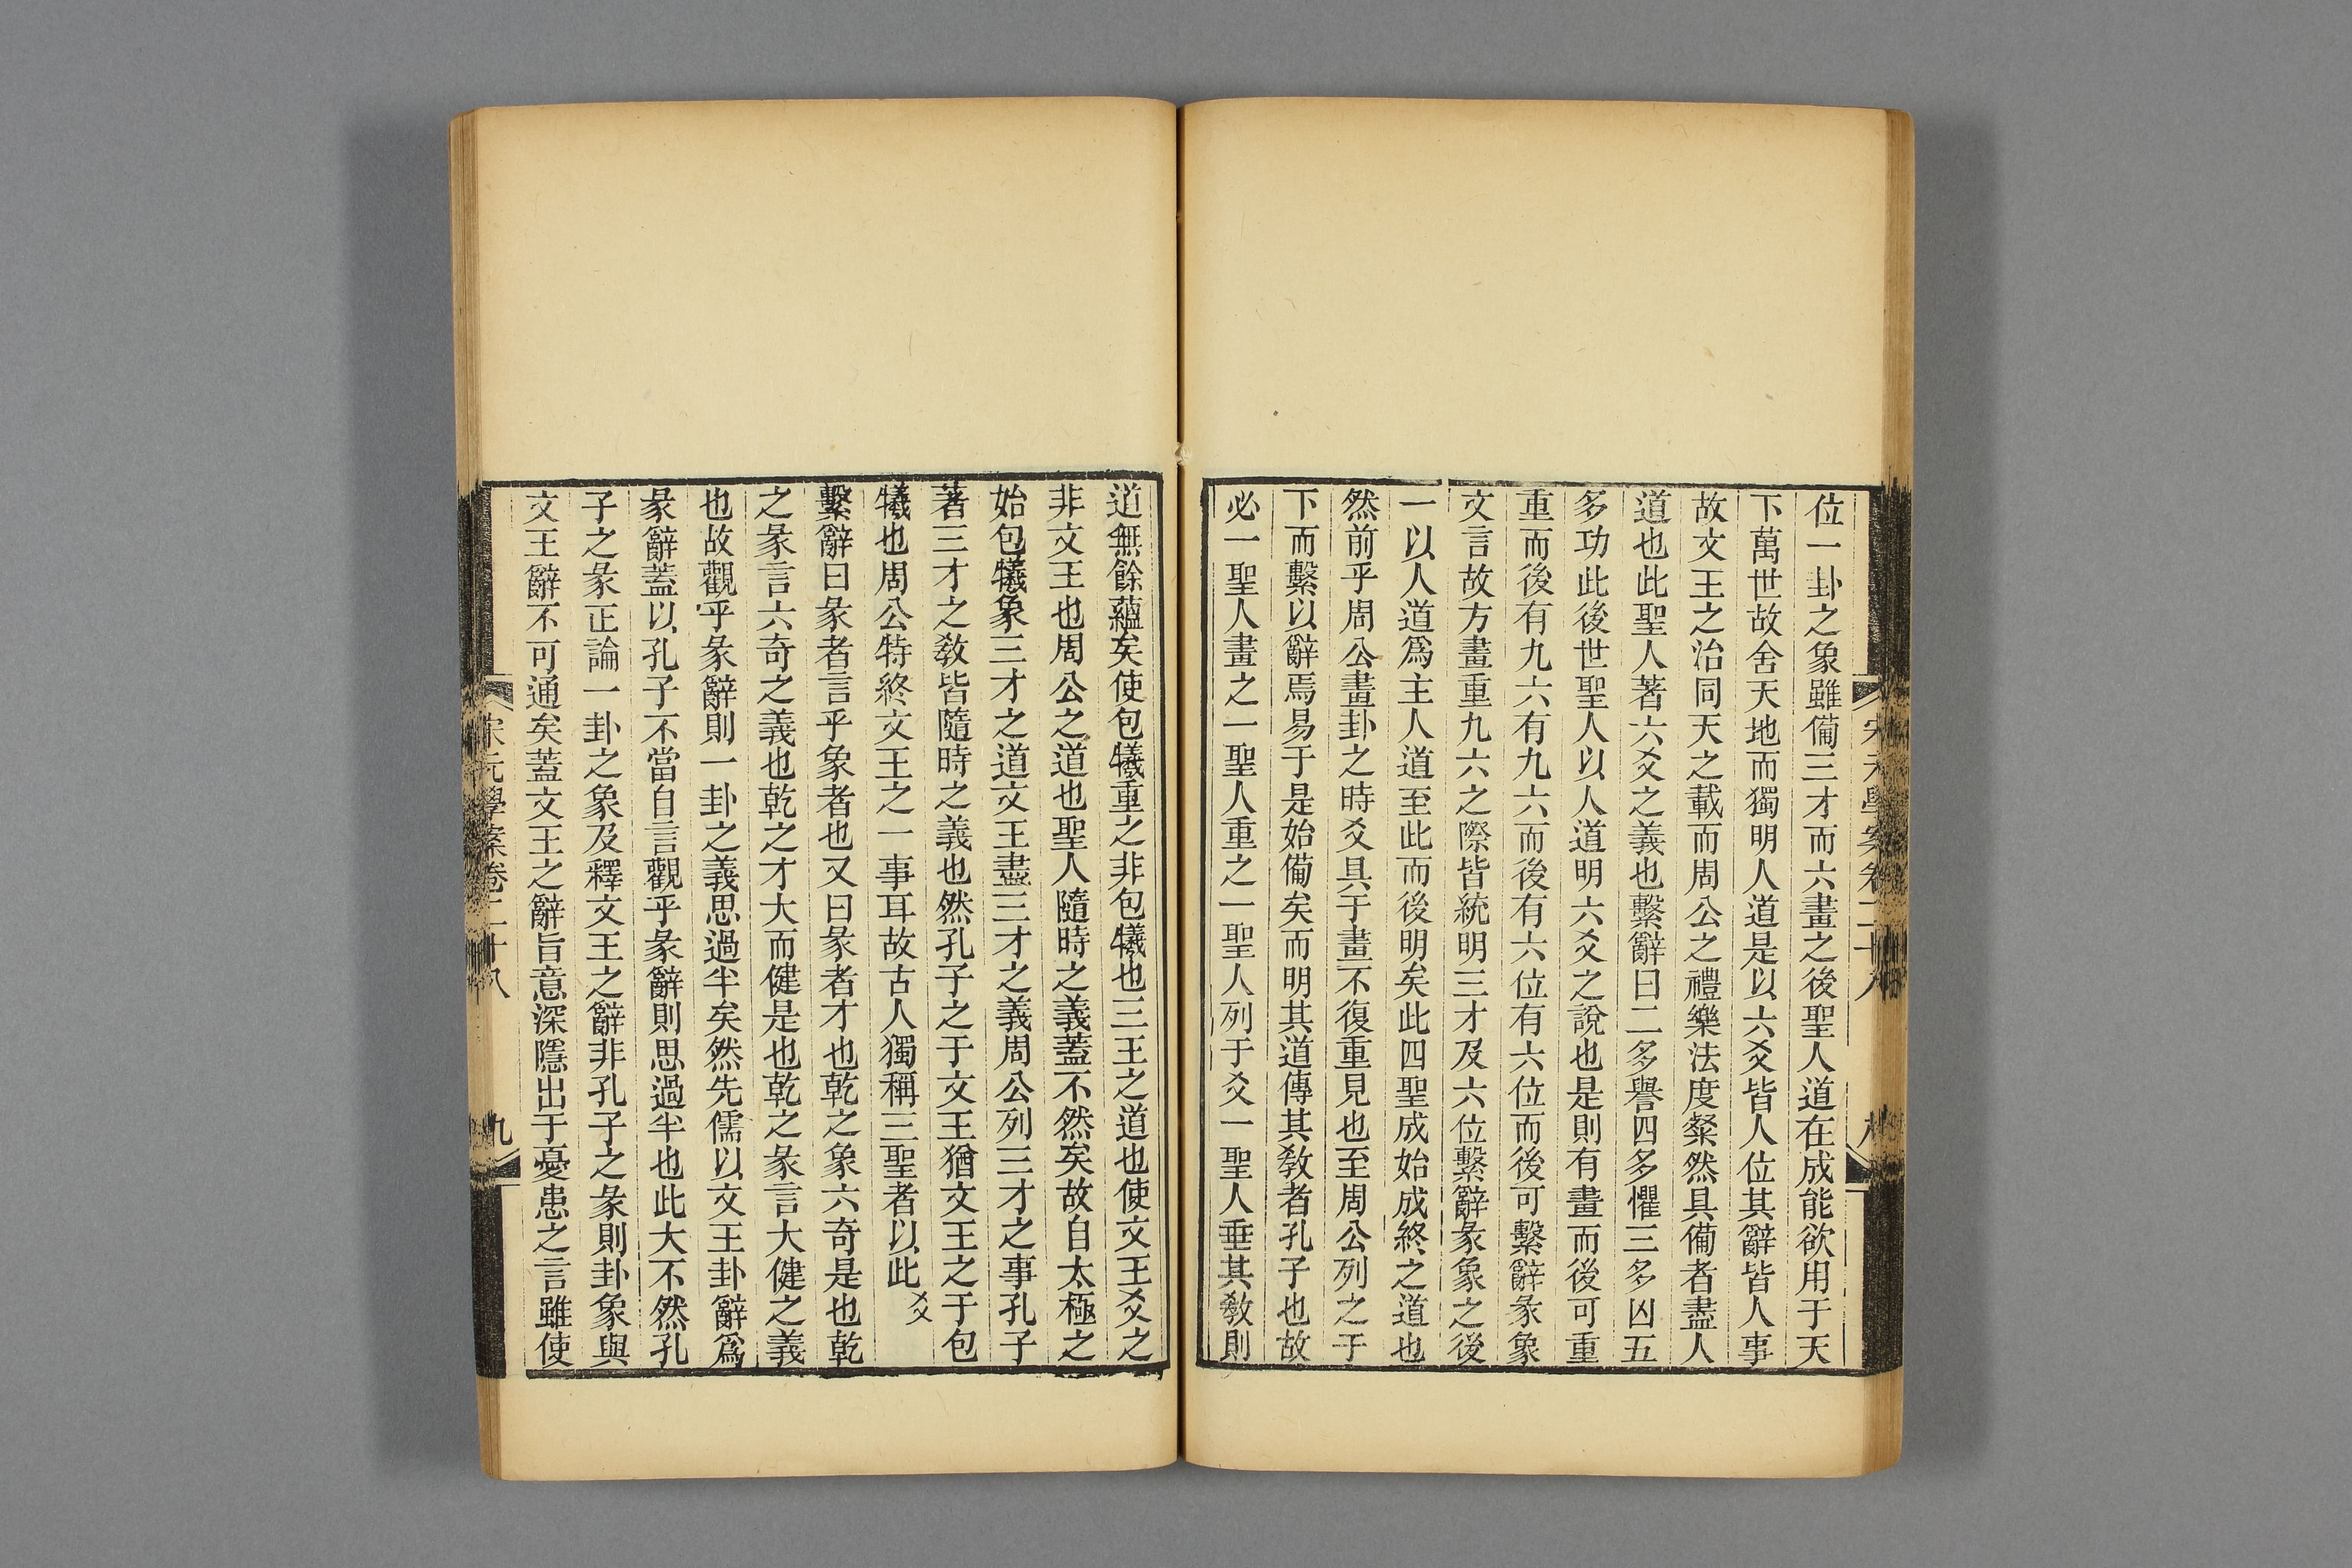 位一卦之象雖僃三才而六畫之後聖人道在成能欲用于天
下萬世故舍天地而獨明人道是以六爻皆人位其辭皆人事
故文王之治同天之載而周公之禮樂法度粲然具僃者盡人
道也此聖人著六爻之義也繫辭曰二多譽四多懼三多凶五
多功此後世聖人以人道明六爻之說也是則有畫而後可重
重而後有九六有九六而後有六位有六位而後可繫辭彖象
文言故方畫重九六之際皆統明三才及六位繫辭彖象之後
一以人道爲主人道至此而後明矣此四聖成始成終之道也
然前乎周公畫卦之時爻具于畫不復重見也至周公列之于
下而繫以辭焉易于是始僃矣而明其道傳其敎者孔子也故
必一聖人畫之一聖人重之一聖人列于爻一聖人垂其敎則
道無餘蘊矣使包犧重之非包犧也三王之道也使文王爻之
非文王也周公之道也聖人隨時之義蓋不然矣故自太極之
始包犧象三才之道文王盡三才之義周公列三才之事孔子
著三才之敎皆隨時之義也然孔子之于文王猶文王之于包
犧也周公特終文王之一事耳故古人獨稱三聖者以此 爻
繫辭曰彖者言乎象者也又曰彖者才也乾之象六奇是也乾
之彖言六奇之義也乾之才大而健是也乾之彖言大健之義
也故觀乎彖辭則一卦之義思過半矣然先儒以文王卦辭爲
彖辭蓋以孔子不當自言觀乎彖辭則思過半也此大不然孔
子之彖正論一卦之象及釋文王之辭非孔子之彖則卦象與
文王辭不可通矣蓋文王之辭旨意深隱出于憂患之言雖使
宋元學案卷二十八
九